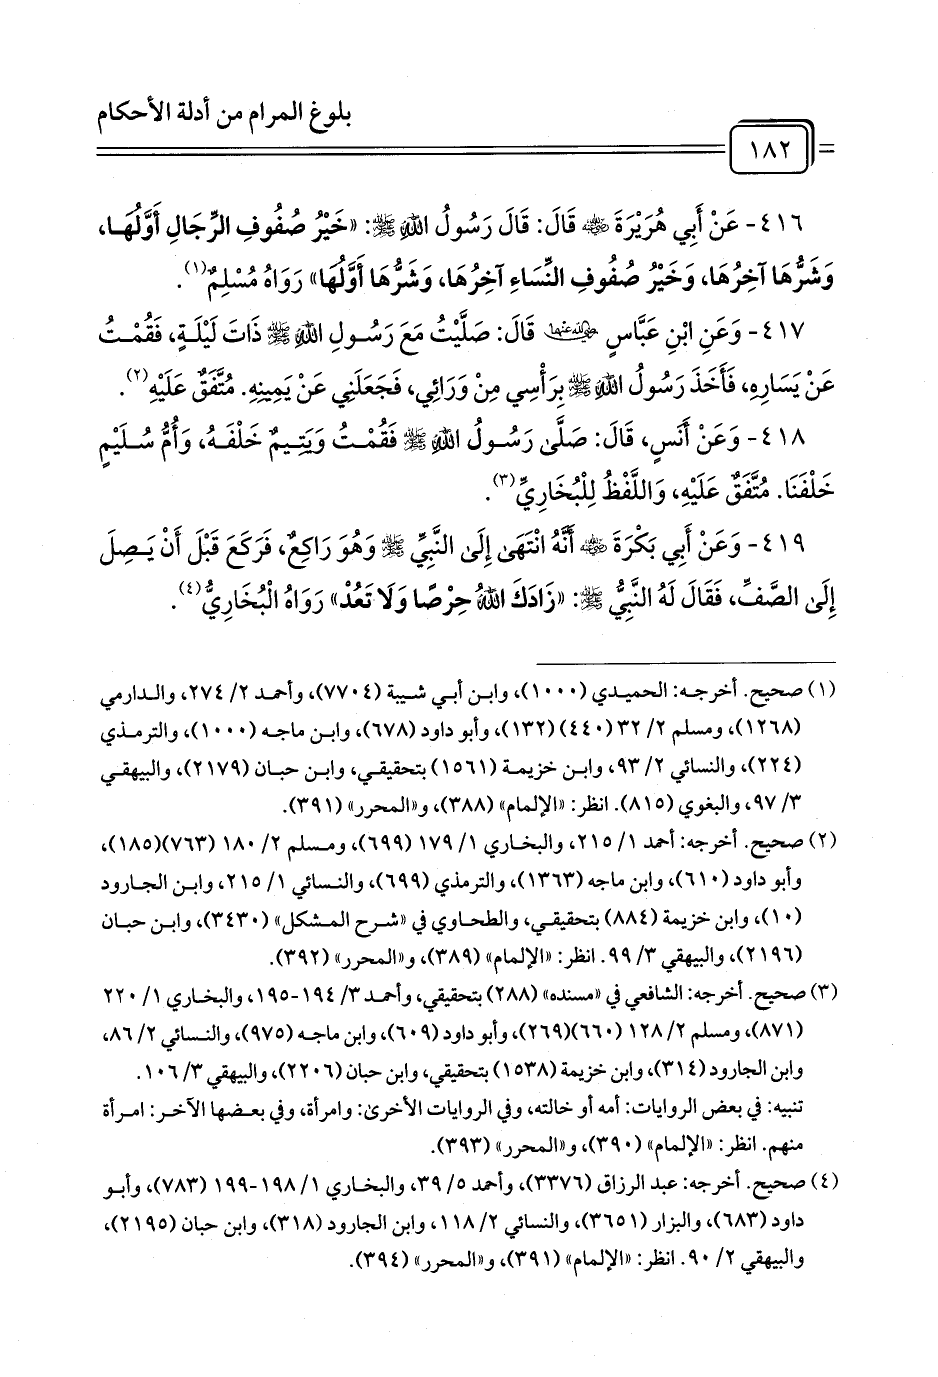 بلوغ المرام من أدلة الأحكام
١٨٢
٤١٦- عَنْ أَبِي هُرَيْرَةَ ﵁ قَالَ: قَالَ رَسُولُ اللهِ ﷺ: «خَيْرُ صُفُوفِ الرِّجَالِ أَوَّلُهَا،
وَشَرُّهَا آخِرُهَا، وَخَيْرُ صُفُوفِ النِّسَاءِ آخِرُهَا، وَشَرُّهَا أَوَّلُهَا» رَوَاهُ مُسْلِمٌ(١).
٤١٧- وَعَنِ ابْنِ عَبَّاسٍ ﵄ قَالَ: صَلَّيْتُ مَعَ رَسُولِ اللهِ ﷺ ذَاتَ لَيْلَةٍ، فَقُمْتُ
عَنْ يَسَارِهِ، فَأَخَذَ رَسُولُ اللهِ ﷺ بِرَأْسِي مِنْ وَرَائِي، فَجَعَلَنِي عَنْ يَمِينِهِ. مُتَّفَقٌ عَلَيْهِ(٢).
٤١٨- وَعَنْ أَنَسٍ، قَالَ: صَلَّى رَسُولُ اللهِ ﷺ فَقُمْتُ وَيَتِيمٌ خَلْفَهُ، وَأُمُّ سُلَيْمٍ
خَلْفَنَا. مُتَّفَقٌ عَلَيْهِ، وَاللَّفْظُ لِلْبُخَارِيِّ(٣).
٤١٩- وَعَنْ أَبِي بَكْرَةَ ﵁ أَنَّهُ انْتَهَى إِلَى النَّبِيِّ ﷺ وَهُوَ رَاكِعٌ، فَرَكَعَ قَبْلَ أَنْ يَصِلَ
إِلَى الصَّفِّ، فَقَالَ لَهُ النَّبِيُّ ﷺ: «زَادَكَ اللهُ حِرْصًا وَلَا تَعُدْ» رَوَاهُ الْبُخَارِيُّ(٤).
(١) صحيح. أخرجه: الحميدي (١٠٠٠)، وابن أبي شيبة (٧٧٠٤)، وأحمد ٢/ ٢٧٤، والدارمي
(١٢٦٨)، ومسلم ٢/ ٣٢ (٤٤٠) (١٣٢)، وأبو داود (٦٧٨)، وابن ماجه (١٠٠٠)، والترمذي
(٢٢٤)، والنسائي ٢/ ٩٣، وابن خزيمة (١٥٦١) بتحقيقي، وابن حبان (٢١٧٩)، والبيهقي
٣/ ٩٧، والبغوي (٨١٥). انظر: «الإلمام» (٣٨٨)، و«المحرر» (٣٩١).
(٢) صحيح. أخرجه: أحمد ١/ ٢١٥، والبخاري ١/ ١٧٩ (٦٩٩)، ومسلم ٢/ ١٨٠ (٧٦٣)(١٨٥)،
وأبو داود (٦١٠)، وابن ماجه (١٣٦٣)، والترمذي (٦٩٩)، والنسائي ١/ ٢١٥، وابن الجارود
(١٠)، وابن خزيمة (٨٨٤) بتحقيقي، والطحاوي في «شرح المشكل» (٣٤٣٠)، وابن حبان
(٢١٩٦)، والبيهقي ٣/ ٩٩. انظر: «الإلمام» (٣٨٩)، و«المحرر» (٣٩٢).
(٣) صحيح. أخرجه: الشافعي في «مسنده» (٢٨٨) بتحقيقي، وأحمد ٣/ ١٩٤-١٩٥، والبخاري ١/ ٢٢٠
(٨٧١)، ومسلم ٢/ ١٢٨ (٦٦٠)(٢٦٩)، وأبو داود (٦٠٩)، وابن ماجه (٩٧٥)، والنسائي ٢/ ٨٦،
وابن الجارود (٣١٤)، وابن خزيمة (١٥٣٨) بتحقيقي، وابن حبان (٢٢٠٦)، والبيهقي ٣/ ١٠٦.
تنبيه: في بعض الروايات: أمه أو خالته، وفي الروايات الأخرى: وامرأة، وفي بعضها الآخر: امرأة
منهم. انظر: «الإلمام» (٣٩٠)، و«المحرر» (٣٩٣).
(٤) صحيح. أخرجه: عبد الرزاق (٣٣٧٦)، وأحمد ٥/ ٣٩، والبخاري ١/ ١٩٨-١٩٩ (٧٨٣)، وأبو
داود (٦٨٣)، والبزار (٣٦٥١)، والنسائي ٢/ ١١٨، وابن الجارود (٣١٨)، وابن حبان (٢١٩٥)،
والبيهقي ٢/ ٩٠. انظر: «الإلمام» (٣٩١)، و«المحرر» (٣٩٤).